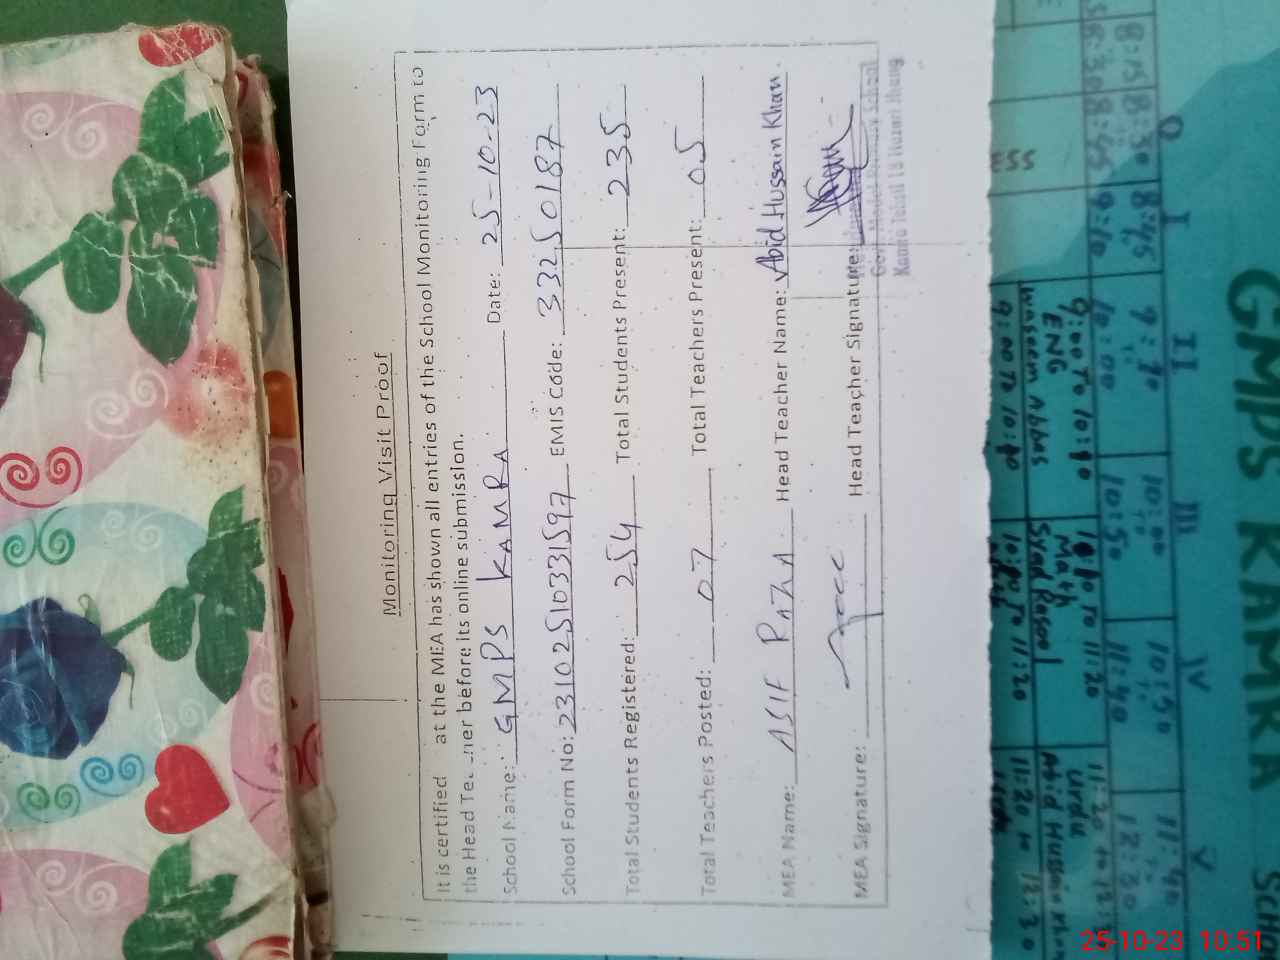 Monitoring Visit Proof
It is certified at the MEA has shown all entries of the School Monitoring Form to
the Head before its online submission.
School Name: GMPS KAMRA Date: 25-10-23
School Form No: 23102510331597 EMIS Code: 33250187
Total Students Registered: 254 Total Students Present: 235
Total Teachers Posted: 07 Total Teachers Present: 05
MEA Name: ASIF RAZA Head Teacher Name: Abid Hussain Khan.
MEA Signature: Head Teacher Signature:
School
Kamra Jhang
0 I II III IV V
8:15 8:30 8:45 9:20 10:00 10:50 11:40
8:30 8:45 9:10 10:00 10:50 11:40 12:30
9:00 To 10:40
ENG
Waseem Abbas
9:00 To 10:40
10:40 To 11:20
Math
Syed Rasool
10:40 To 11:20
11:20 to
Urdu
Abid Hussain Khan
11:20 to 12:30
GMPS KAMRA
25-10-23 10:51